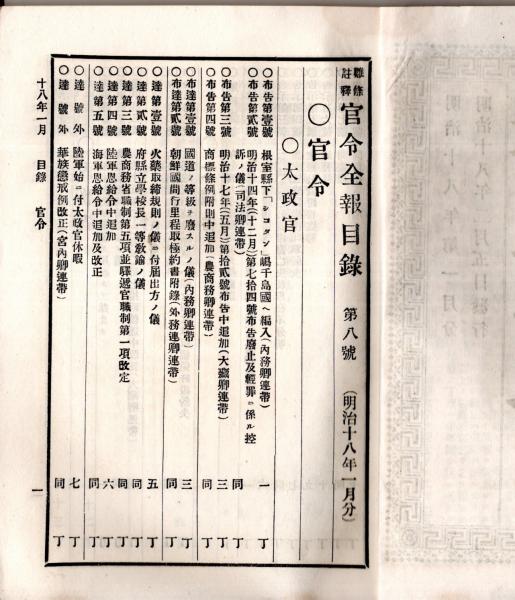 難條註釋 官令全報目錄 第八號 (明治十八年一月分)
〇官令
〇太政官
〇布告第壹號 根室縣下「シコタン」嶋千島國ヘ編入(內務卿連帶) 一丁
〇布告第貳號 明治十四年(十二月)第七十四號布告廢止及輕罪ニ係ル控
訴ノ儀(司法卿連帶) 同丁
〇布告第三號 明治十七年(五月)第拾貳號布告中追加(大藏卿連帶) 三丁
〇布告第四號 商標條例附則中追加(農商務卿連帶) 同丁
〇布達第壹號 國道ノ等級ヲ廢スルノ儀(內務卿連帶) 三丁
〇布達第貳號 朝鮮國間行里程取極約書附錄(外務連卿連帶) 同丁
〇達第壹號 火藥取締規則ノ儀ニ付屆出方ノ儀 五丁
〇達第貳號 府縣立學校長一等敎諭ノ儀 同丁
〇達第三號 農商務省職制第五項並驛遞官職制第一項改定 同丁
〇達第四號 陸軍恩給令中追加 六丁
〇達第五號 海軍恩給令中追加及改正 同丁
〇達號外 陸軍始ニ付太政官休暇 七丁
〇達號外 華族懲戒例改正(宮內卿連帶) 同丁
十八年一月 目錄 官令 一